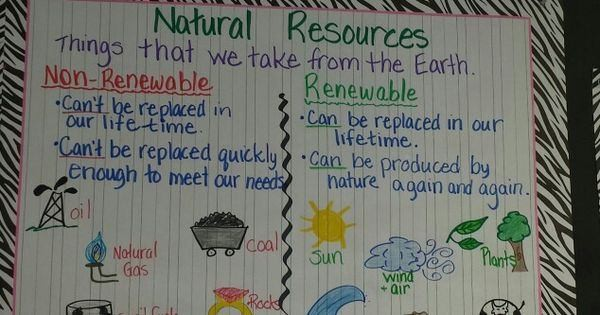 Natural Resources
Things that we take from the Earth.
Non-Renewable
• Can't be replaced in
our lifetime.
• Can't be replaced quickly
enough to meet our needs
oil
Natural
Gas
coal
Rocks
Renewable
• Can be replaced in our
lifetime.
• Can be produced by
nature again and again.
Sun
wind
+ air
Plants